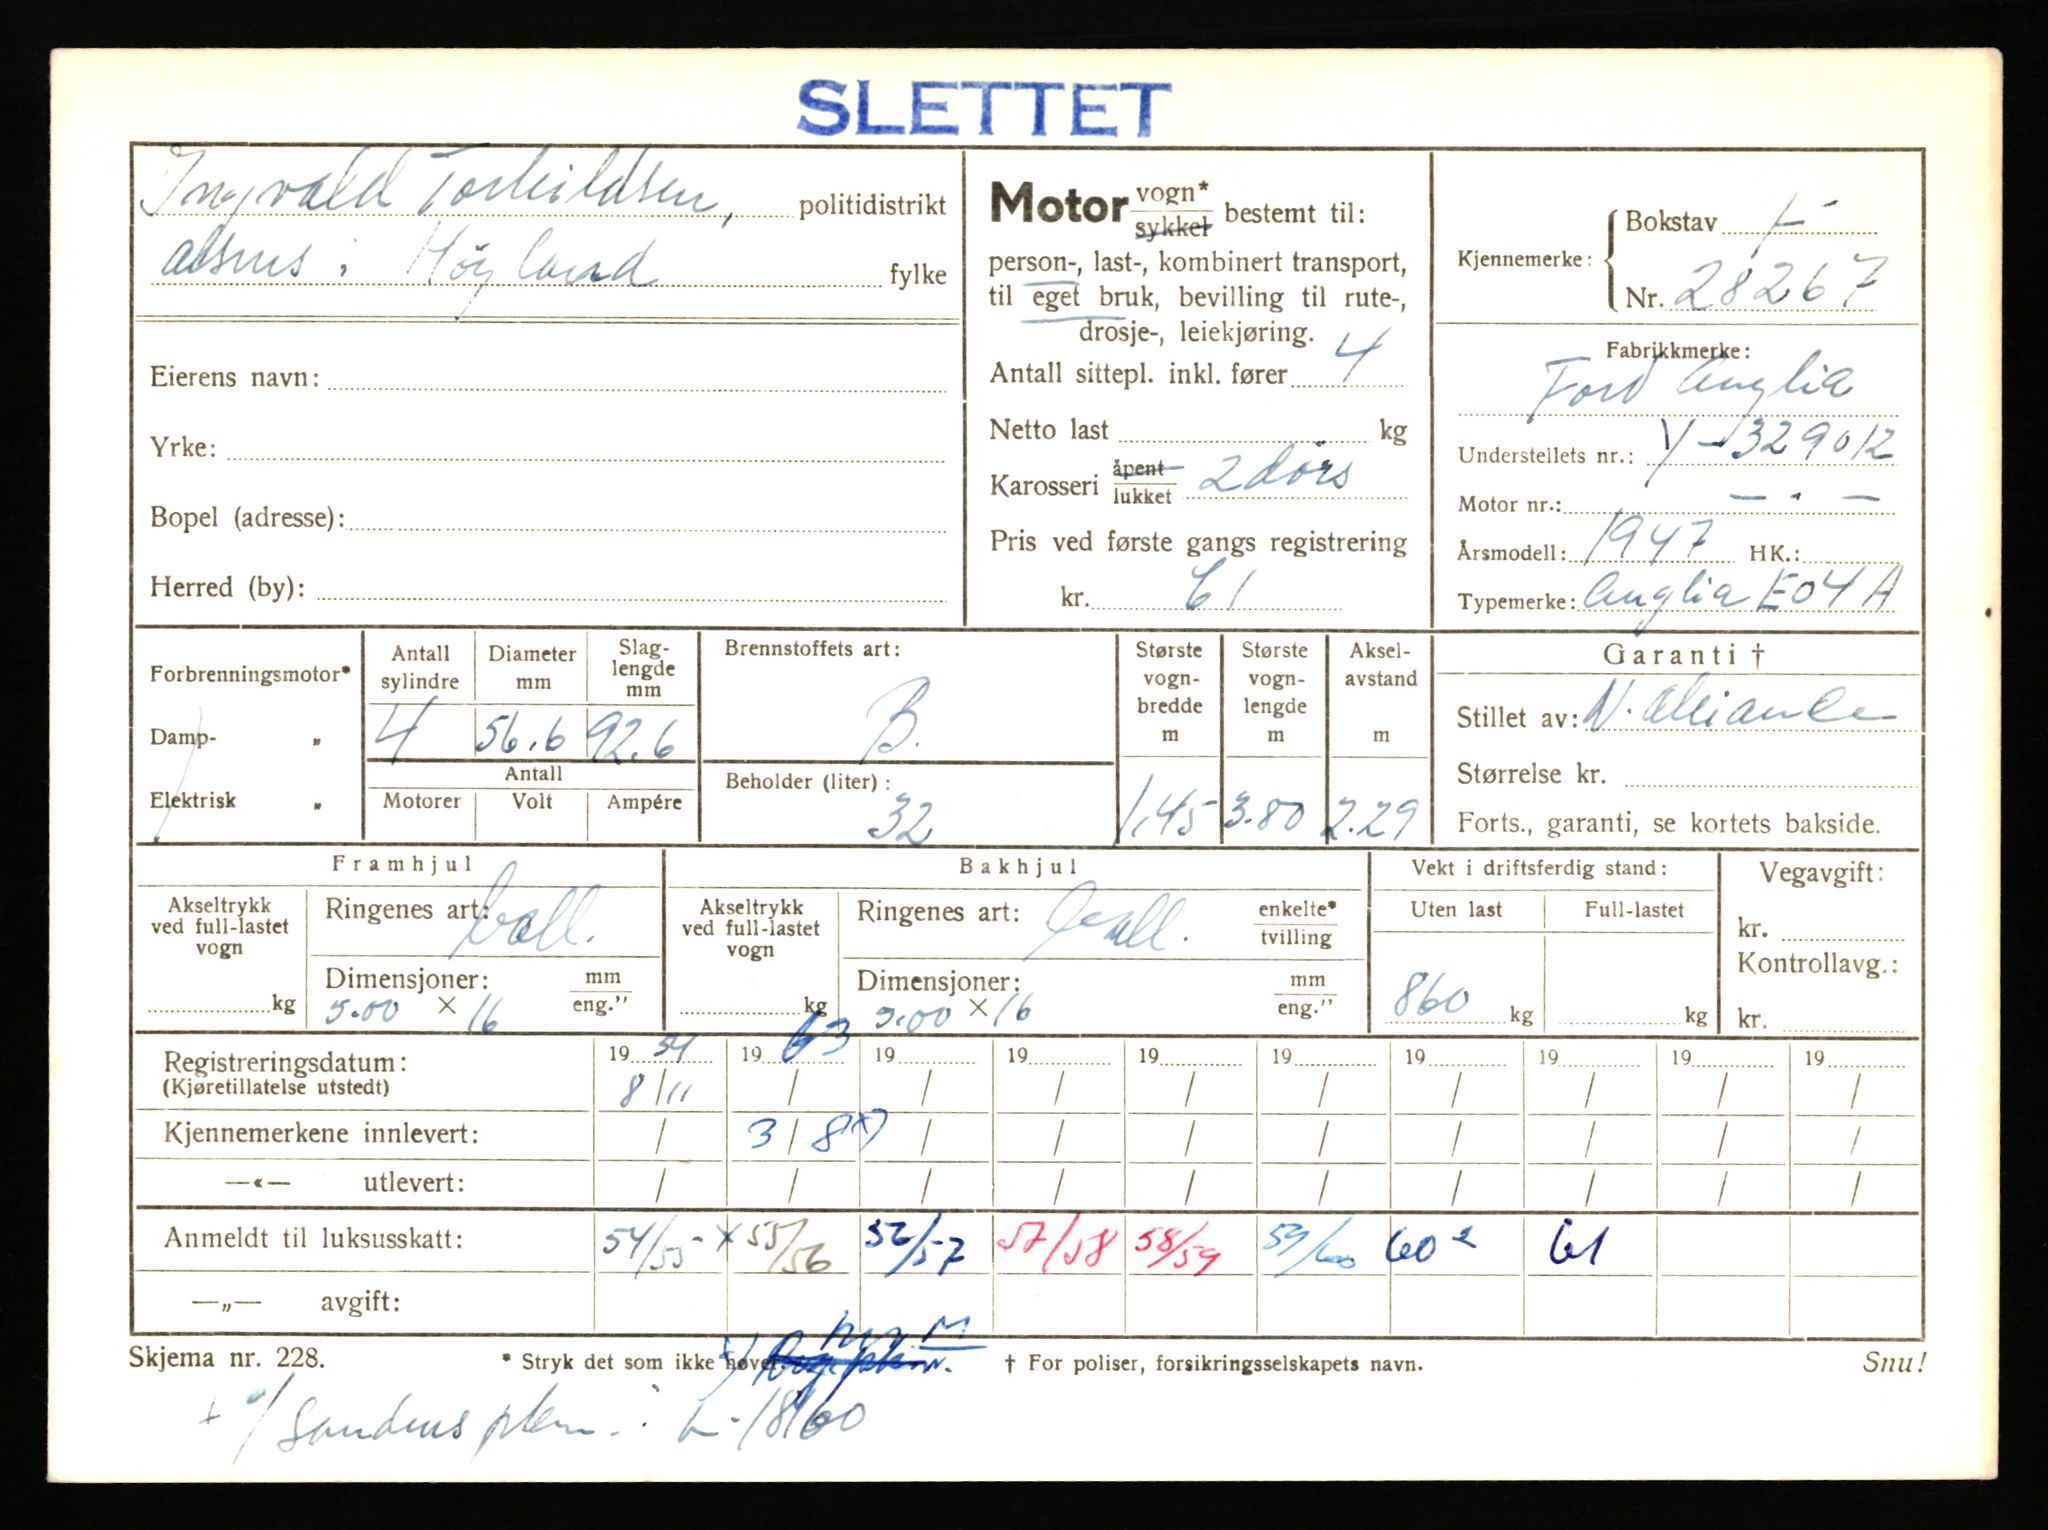 SLETTET
Ingvald Torkildsen, politidistrikt
Høyland fylke
Eierens navn:
Yrke:
Bopel (adresse):
Herred (by):
Motor vogn* sykkel bestemt til:
person-, last-, kombinert transport,
til eget bruk, bevilling til rute-,
drosje-, leiekjøring.
Antall sittepl. inkl. fører 4
Netto last kg
Karosseri åpent lukket 2 dörs
Pris ved første gangs registrering
kr. 61
Kjennemerke: Bokstav L
Nr. 28267
Fabrikkmerke:
Ford Anglia
Understellets nr.: Y-329012
Motor nr.: - . -
Årsmodell: 1947 HK.:
Typemerke: Anglia E04A
Forbrenningsmotor*
Damp- „
Elektrisk „
Antall sylindre
Diameter mm
Slag-lengde mm
4 56.6 92.6
Antall
Motorer Volt Ampére
Brennstoffets art:
B.
Beholder (liter):
32
Største vogn-bredde m
1,45
Største vogn-lengde m
3.80
Aksel-avstand m
2.29
Garanti †
Stillet av: N. Alliance
Størrelse kr.
Forts., garanti, se kortets bakside.
Framhjul
Akseltrykk ved full-lastet vogn
kg
Ringenes art: ball.
Dimensjoner: mm eng."
5.00 × 16
Bakhjul
Akseltrykk ved full-lastet vogn
kg
Ringenes art: ball. enkelte* tvilling
Dimensjoner: mm eng."
5.00 × 16
Vekt i driftsferdig stand:
Uten last Full-lastet
860 kg kg
Vegavgift:
kr.
Kontrollavg.:
kr.
Registreringsdatum: 19 54 19 63 19 19 19 19 19 19 19 19
(Kjøretillatelse utstedt) 8/11 / / / / / / / / /
Kjennemerkene innlevert: / 3/8 x) / / / / / / / /
—«— utlevert: / / / / / / / / / /
Anmeldt til luksusskatt: 54/55 x 55/56 56/57 57/58 58/59 59/60 60² 61
—„— avgift:
Skjema nr. 228.
* Stryk det som ikke høver.
† For poliser, forsikringsselskapets navn.
Snu!
L-18160